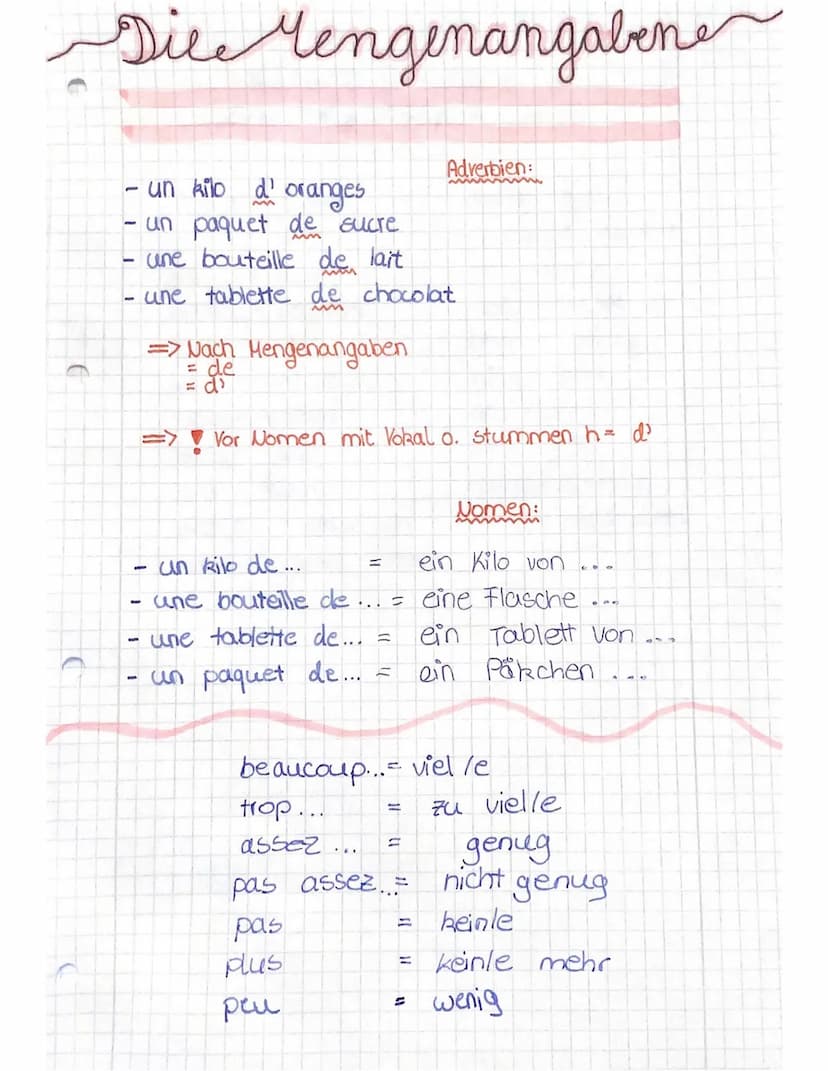 Die Mengenangaben
Adverbien:
- un kilo d' oranges
- un paquet de sucre
- une bouteille de lait
- une tablette de chocolat
=> Nach Mengenangaben
= de
= d'
=> ! Vor Nomen mit Vokal o. stummen h = d'
Nomen:
- un kilo de ... = ein Kilo von ...
- une bouteille de ... = eine Flasche ...
- une tablette de... = ein Tablett von ...
- un paquet de... = ein Päkchen ...
beaucoup...= viel/e
trop ... = zu viel/e
assez ... = genug
pas assez...= nicht genug
pas = kein/e
plus = kein/e mehr
peu = wenig